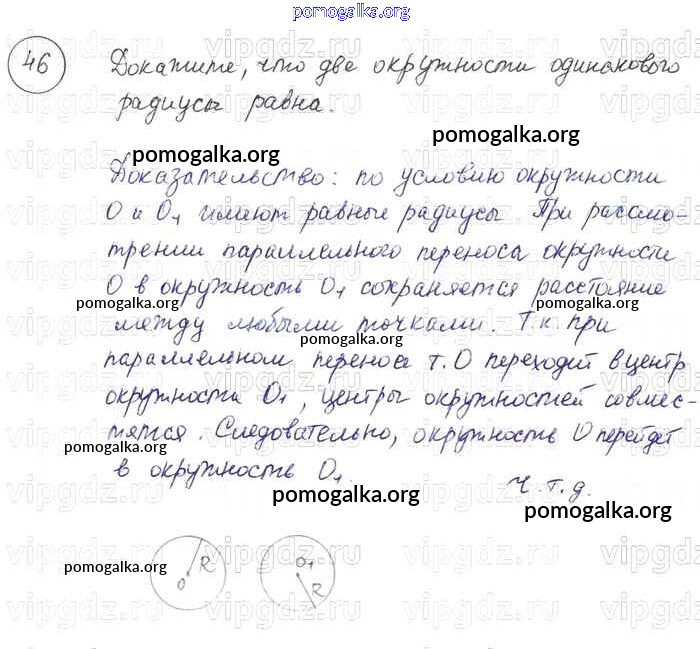 pomogalka.org
46
Докажите, что две окружности одинакового
радиуса равна.
pomogalka.org
pomogalka.org
Доказательство: по условию окружности
О и О₁ имеют равные радиусы При рассмо-
трении параллельного переноса окружности
О в окружность О₁ сохраняется расстояние
pomogalka.org pomogalka.org
между любыми точками. Т.к. при
pomogalka.org
параллельном переносе т. О переходит в центр
окружности О₁, центры окружностей совмес-
тятся. Следовательно, окружность О перейдет
pomogalka.org
в окружность О₁.
ч.т.д.
pomogalka.org
pomogalka.org
pomogalka.org
О R О₁ R
vipgdz.ru